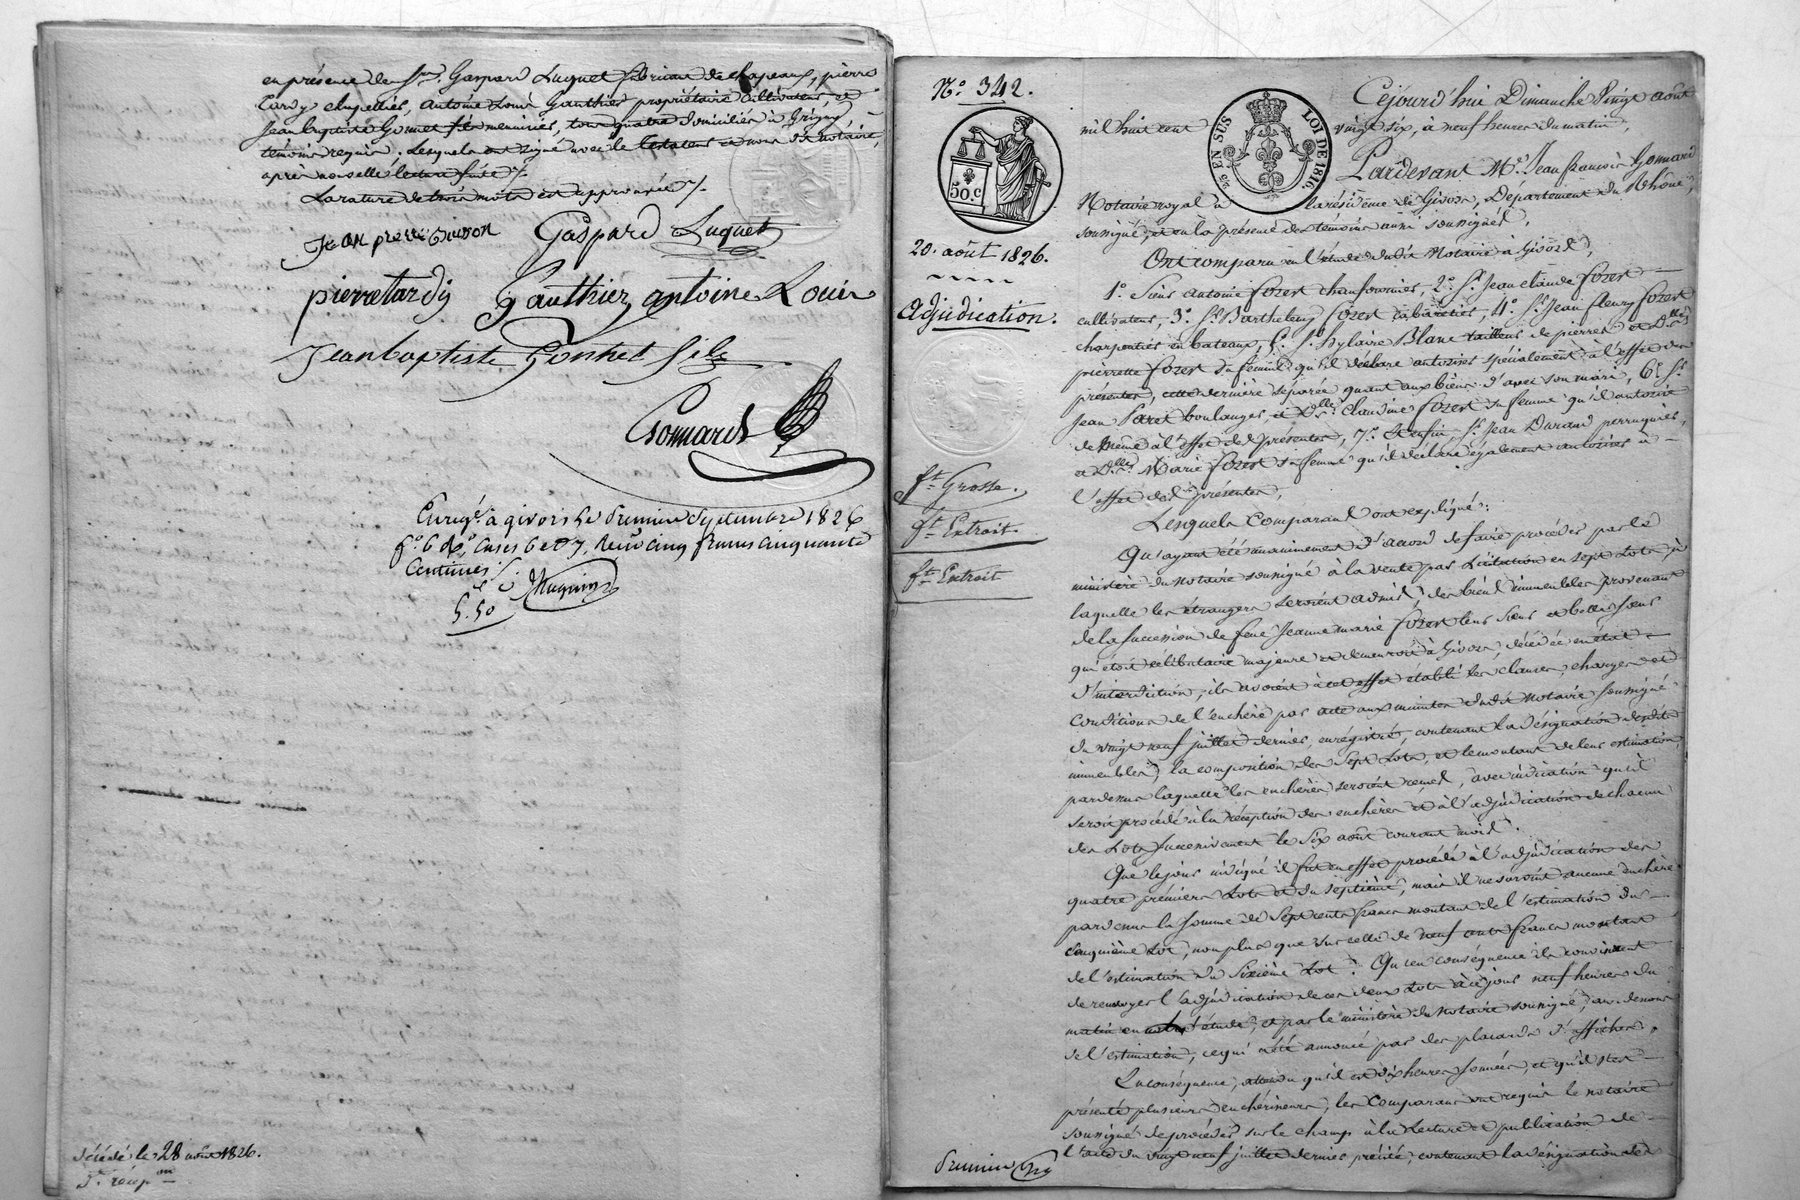 en présence de Srs. Gaspard Luquet fabricant de chapeaux, pierre
Tardy chapellier, antoine Louis Gauthier propriétaire cultivateur, et
Jean baptiste Gonnet fils menuisier, tous quatre domiciliés à Grigny
témoins requis. Lesquels ont signé avec le testateur et nous dit notaire,
après nouvelle lecture faite ./.
La rature de trois mots est approuvée ./.
Jean pierre
Gaspard Luquet
pierre tardy
Gauthier antoine Louis
Jean baptiste Gonnet fils
Gonnard
Enregé. à givors le premier Septembre 1826
fo. 6 Ro. cases 6 et 7, Reçu cinq francs cinquante
centimes
5.50
Décédé le 28 août 1826.
No. 342.
50 c
EN SUS
LOI DE 1816.
20. août 1826.
adjudication.
ft. Grosse.
ft. Extrait.
ft. Extrait
Cejourd'hui Dimanche vingt août
mil huit cent vingt six, à neuf heures du matin,
Pardevant Me. Jean françois Gonnard
Notaire royal à la résidence de Givors, Département du Rhône,
soussigné, et en la présence des témoins aussi soussignés,
Ont comparu en l'étude dudit Notaire à Givors,
1o. Sieur antoine fozest chaufournier, 2o. Sr. Jean claude fozest
cultivateur, 3o. Sr. Barthelemy fozest cabaretier, 4o. Sr. Jean fleury fozest
charpentier en bateaux, 5o. Sr. hylaire Blanc tailleur de pierres et Dlle.
pierrette fozest sa femme qu'il déclare autoriser spécialement à l'effet des
présentes, cette dernière séparée quant aux biens d'avec son mari, 6o. Sr.
Jean Paret boulanger, et Dlle. Claudine fozest sa femme qu'il autorise
de même à l'effet des présentes, 7o. Et enfin, Sr. Jean Durand perruquier,
et Dlle. Marie fozest sa femme qu'il déclare également autoriser à
l'effet des présentes,
Lesquels Comparans ont expliqué :
Qu'ayant été unanimement d'accord de faire procéder par le
ministère du notaire soussigné à la vente par Licitation en sept Lots, à
laquelle les étrangers seroient admis, des biens immeubles provenant
de la succession de feue Jeanne marie fozest leur Sœur et belle sœur
qui étoit célibataire majeure et demeuroit à Givors, décédée en état
d'interdiction, ils avoient à cet effet établi les clauses, charges et
conditions de l'enchère par acte aux minutes dudit Notaire soussigné
du vingt neuf juillet dernier, enregistré, contenant la désignation desdits
immeubles, la composition des Sept Lots, et le montant de leur estimation
pardessus laquelle les enchères seroient remises, avec indication qu'il
seroit procédé à la réception des enchères et à l'adjudication de chacun
des Lots successivement le Six août courant mois.
Que le jour indiqué il fut en effet procédé à l'adjudication des
quatre premiers Lots et du septième, mais il ne survint aucune enchère
pardessus la somme de Sept cents francs montant de l'estimation du
cinquième Lot, non plus que sur celle de neuf cents francs montant
de l'estimation du Sixième Lot. Qu'en conséquence ils convinrent
de renvoyer l'adjudication de ces deux Lots à ce jour neuf heures du
matin en l'étude, et par le ministère du notaire soussigné, au dessous
de l'estimation, ce qui a été annoncé par des placards d'affiches.
En conséquence, attendu qu'il est dix heures sonnées, et qu'il s'est
présenté plusieurs enchérisseurs, les comparans ont requis le notaire
soussigné de procéder sur le champ à la Lecture et publication de
l'acte du vingt neuf juillet dernier précité, contenant la désignation des
premier